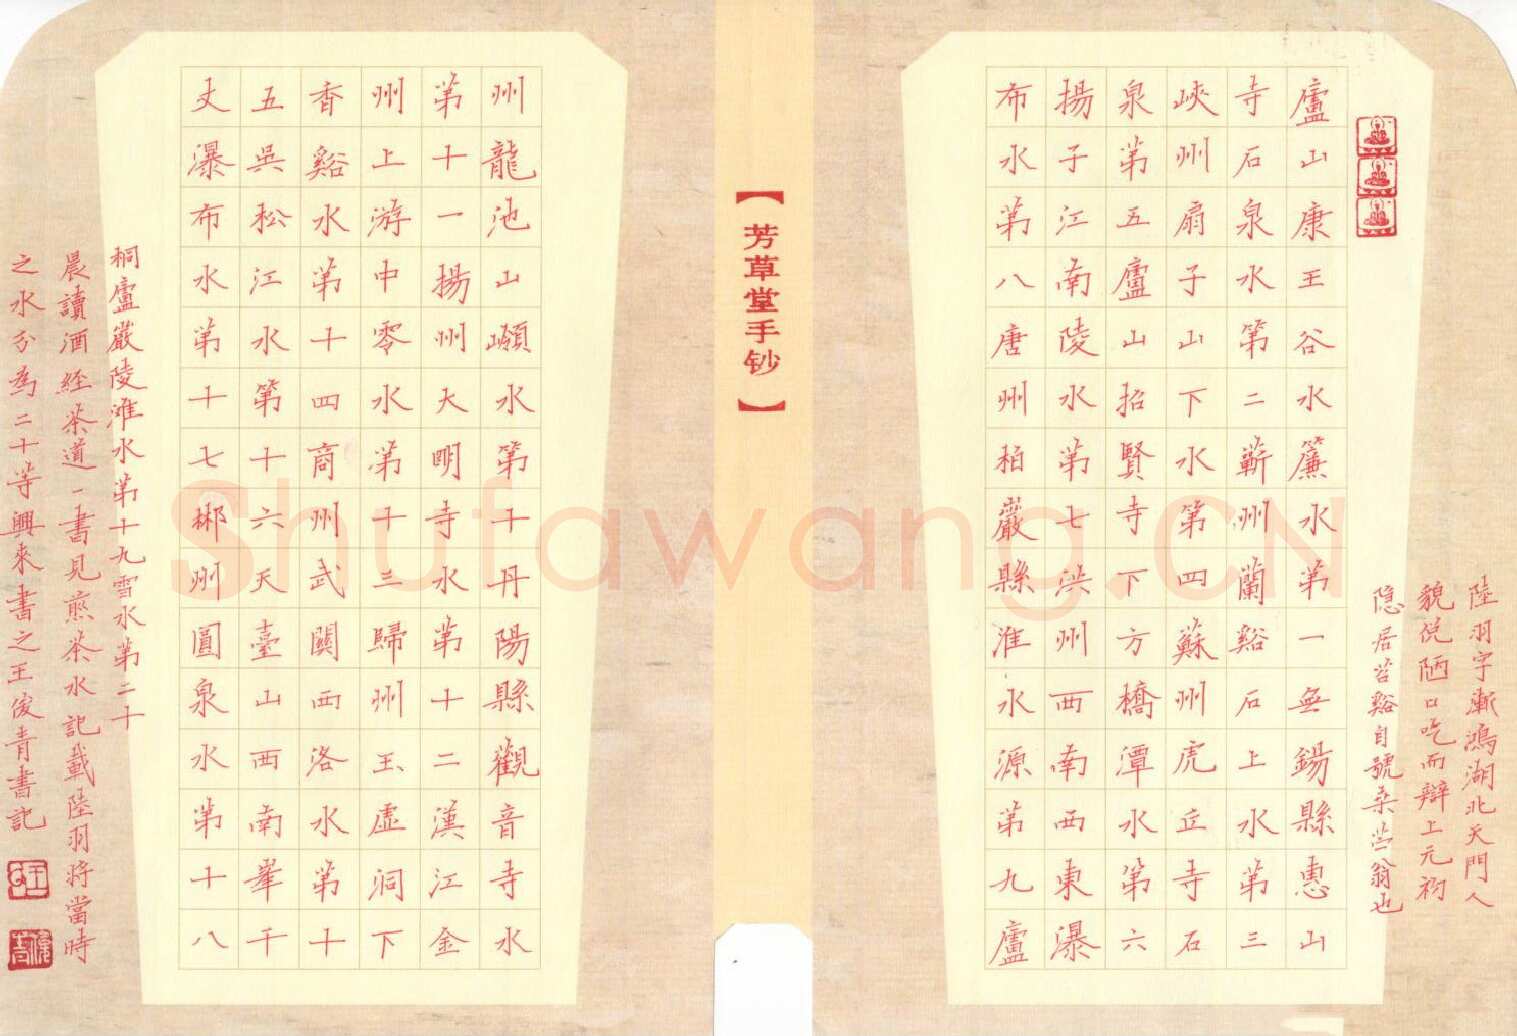 陸羽字漸鴻湖北天門人
貌侻陋口吃而辯上元初
隱居苕谿自號桑苎翁也
廬山康王谷水簾水第一無錫縣惠山
寺石泉水第二蘄州蘭谿石上水第三
峽州扇子山下水第四蘇州虎丘寺石
泉第五廬山招賢寺下方橋潭水第六
揚子江南陵水第七洪州西南西東瀑
布水第八唐州柏巖縣淮水源第九廬
【芳草堂手钞】
州龍池山嶺水第十丹陽縣觀音寺水
第十一揚州大明寺水第十二漢江金
州上游中零水第十三歸州玉虛洞下
香谿水第十四商州武關西洛水第十
五吳松江水第十六天臺山西南峯千
丈瀑布水第十七郴州圓泉水第十八
桐廬嚴陵灘水第十九雪水第二十
晨讀酒經茶道一書見煎茶水記載陸羽將當時
之水分為二十等興來書之王俊青書記
Shufawang.CN